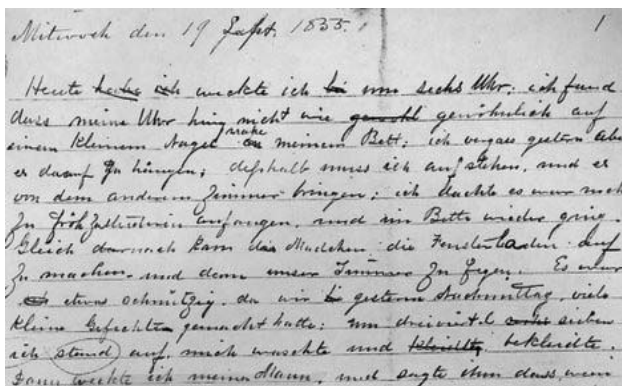 Mitwoch den 19 Sept. 1855. 1
Heute habe ich weckte ich bei um sechs Uhr; ich fand
dass meine Uhr hing nicht wie gewohnlich auf
einem kleinem Nagel nahe an meinem Bett; ich vergass gestern Abe
er darauf zu hängen; deſshalb muss ich aufstehen, und er
von dem anderem Zimmer bringen; ich dachte es war noch
zu früh anfangen, und im Bette wieder ging.
Gleich darnach kam das Madchen die Fensterladen auf
zu machen, und dem unser Zimmer zu fegen. Es war
etwas schmützig, da wir gestern Nachmittag, viele
kleine Gefechte gemacht hatte; um dreiviertel sieben
ich stand auf, mich waschte und bekleidte.
Dann weckte ich meinen Mann, und sagte ihm dass, wenn